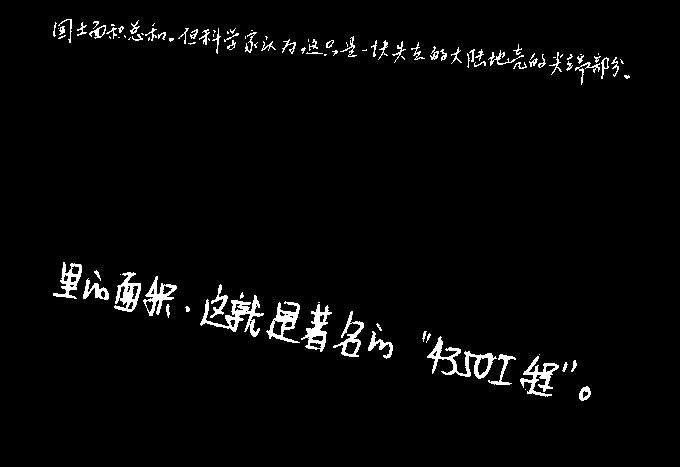 国土面积总和。但科学家认为,这只是一块失去的大陆地壳的尖端部分。
里的面积,这就是著名的“4350工程”。